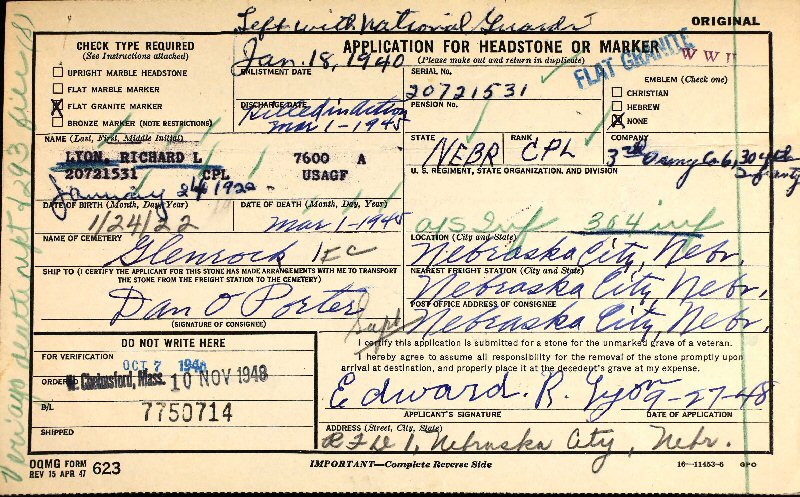 Left with National Guards
ORIGINAL
CHECK TYPE REQUIRED
(See Instructions attached)
UPRIGHT MARBLE HEADSTONE
FLAT MARBLE MARKER
X FLAT GRANITE MARKER
BRONZE MARKER (NOTE RESTRICTIONS)
Jan. 18, 1940
ENLISTMENT DATE
DISCHARGE DATE
Killed in Action
Mar 1-1945
APPLICATION FOR HEADSTONE OR MARKER
(Please make out and return in duplicate)
FLAT GRANITE
WWII
SERIAL No.
20721531
PENSION No.
EMBLEM (Check one)
CHRISTIAN
HEBREW
X NONE
NAME (Last, First, Middle Initial)
LYON, RICHARD L 7600 A
20721531 CPL USAGF
January 24 1922
DATE OF BIRTH (Month, Day, Year)
1/24/22
DATE OF DEATH (Month, Day, Year)
Mar 1-1945
STATE
NEBR
RANK
CPL
COMPANY
3rd Army Co 6, 304th Infantry
U. S. REGIMENT, STATE ORGANIZATION, AND DIVISION
304 inf
NAME OF CEMETERY
Glenrock
LOCATION (City and State)
Nebraska City, Nebr.
SHIP TO (I CERTIFY THE APPLICANT FOR THIS STONE HAS MADE ARRANGEMENTS WITH ME TO TRANSPORT
THE STONE FROM THE FREIGHT STATION TO THE CEMETERY)
NEAREST FREIGHT STATION (City and State)
Nebraska City, Nebr.
Dan O Porter
Supt
(SIGNATURE OF CONSIGNEE)
POST OFFICE ADDRESS OF CONSIGNEE
Nebraska City, Nebr.
DO NOT WRITE HERE
FOR VERIFICATION
OCT 7 1948
ORDERED
W. Chelmsford, Mass. 10 NOV 1948
B/L
7750714
SHIPPED
I certify this application is submitted for a stone for the unmarked grave of a veteran.
I hereby agree to assume all responsibility for the removal of the stone promptly upon
arrival at destination, and properly place it at the decedent's grave at my expense.
Edward. R. Lyon 9-27-48
APPLICANT'S SIGNATURE DATE OF APPLICATION
ADDRESS (Street, City, State)
RFD 1, Nebraska City, Nebr.
DQMG FORM
REV 15 APR 47 623
IMPORTANT—Complete Reverse Side
16—11453-6 GPO